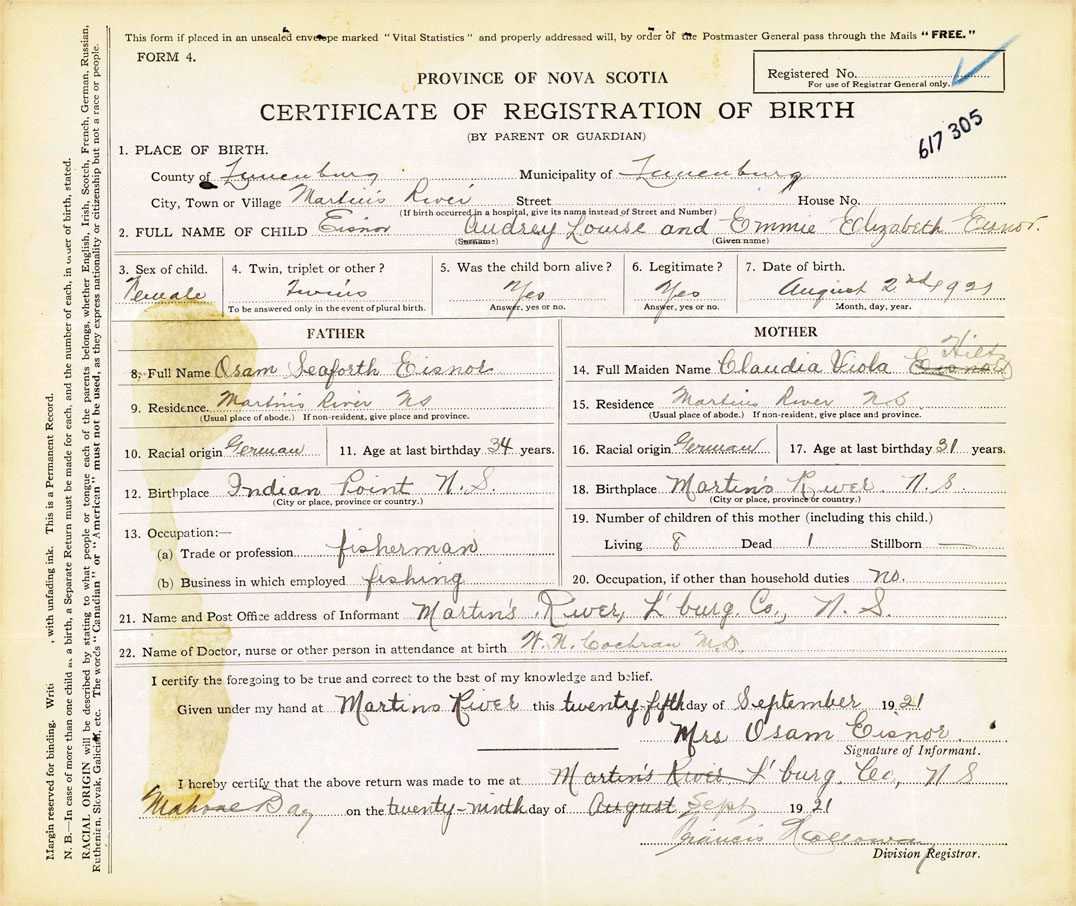 This form if placed in an unsealed envelope marked "Vital Statistics" and properly addressed will, by order of the Postmaster General pass through the Mails "FREE."
FORM 4.
Registered No.
For use of Registrar General only.
PROVINCE OF NOVA SCOTIA
CERTIFICATE OF REGISTRATION OF BIRTH
617 305
(BY PARENT OR GUARDIAN)
1. PLACE OF BIRTH.
County of Lunenburg Municipality of Lunenburg
City, Town or Village Martin's River Street House No.
(If birth occurred in a hospital, give its name instead of Street and Number)
2. FULL NAME OF CHILD Eisnor Audrey Louise and Emmie Elizabeth Eisnor.
(Surname) (Given name)
3. Sex of child. 4. Twin, triplet or other? 5. Was the child born alive? 6. Legitimate? 7. Date of birth.
Female Twins Yes Yes August 2nd, 1921
To be answered only in the event of plural birth. Answer, yes or no. Answer, yes or no. Month, day, year.
FATHER
8. Full Name Osam Seaforth Eisnor
9. Residence. Martin's River NS
(Usual place of abode.) If non-resident, give place and province.
10. Racial origin German 11. Age at last birthday 34 years.
12. Birthplace Indian Point N.S.
(City or place, province or country.)
13. Occupation:—
(a) Trade or profession fisherman
(b) Business in which employed fishing
MOTHER
14. Full Maiden Name Claudia Viola Eisnor Hiltz
15. Residence Martin's River N.S.
(Usual place of abode.) If non-resident, give place and province.
16. Racial origin German 17. Age at last birthday 31 years.
18. Birthplace Martin's River. N.S.
(City or place, province or country.)
19. Number of children of this mother (including this child.)
Living 8 Dead 1 Stillborn —
20. Occupation, if other than household duties no.
21. Name and Post Office address of Informant Martin's River, L'burg. Co., N.S.
22. Name of Doctor, nurse or other person in attendance at birth Cochran M.D.
I certify the foregoing to be true and correct to the best of my knowledge and belief.
Given under my hand at Martins River this twenty-fifth day of September 1921
Mrs Osam Eisnor
Signature of Informant.
I hereby certify that the above return was made to me at Martin's River L'burg. Co., N S
Mahone Bay on the twenty-ninth day of August Sept 1921
Francis
Division Registrar.
Margin reserved for binding. with unfading ink. This is a Permanent Record.
N. B.—In case of more than one child a birth, a Separate Return must be made for each, and the number of each, in order of birth, stated.
RACIAL ORIGIN will be described by stating to what people or tongue each of the parents belongs, whether English, Irish, Scotch, French, German, Russian,
Ruthenian, Slovak, Galician, etc. The words "Canadian" or "American" must not be used, as they express nationality or citizenship but not a race or people.